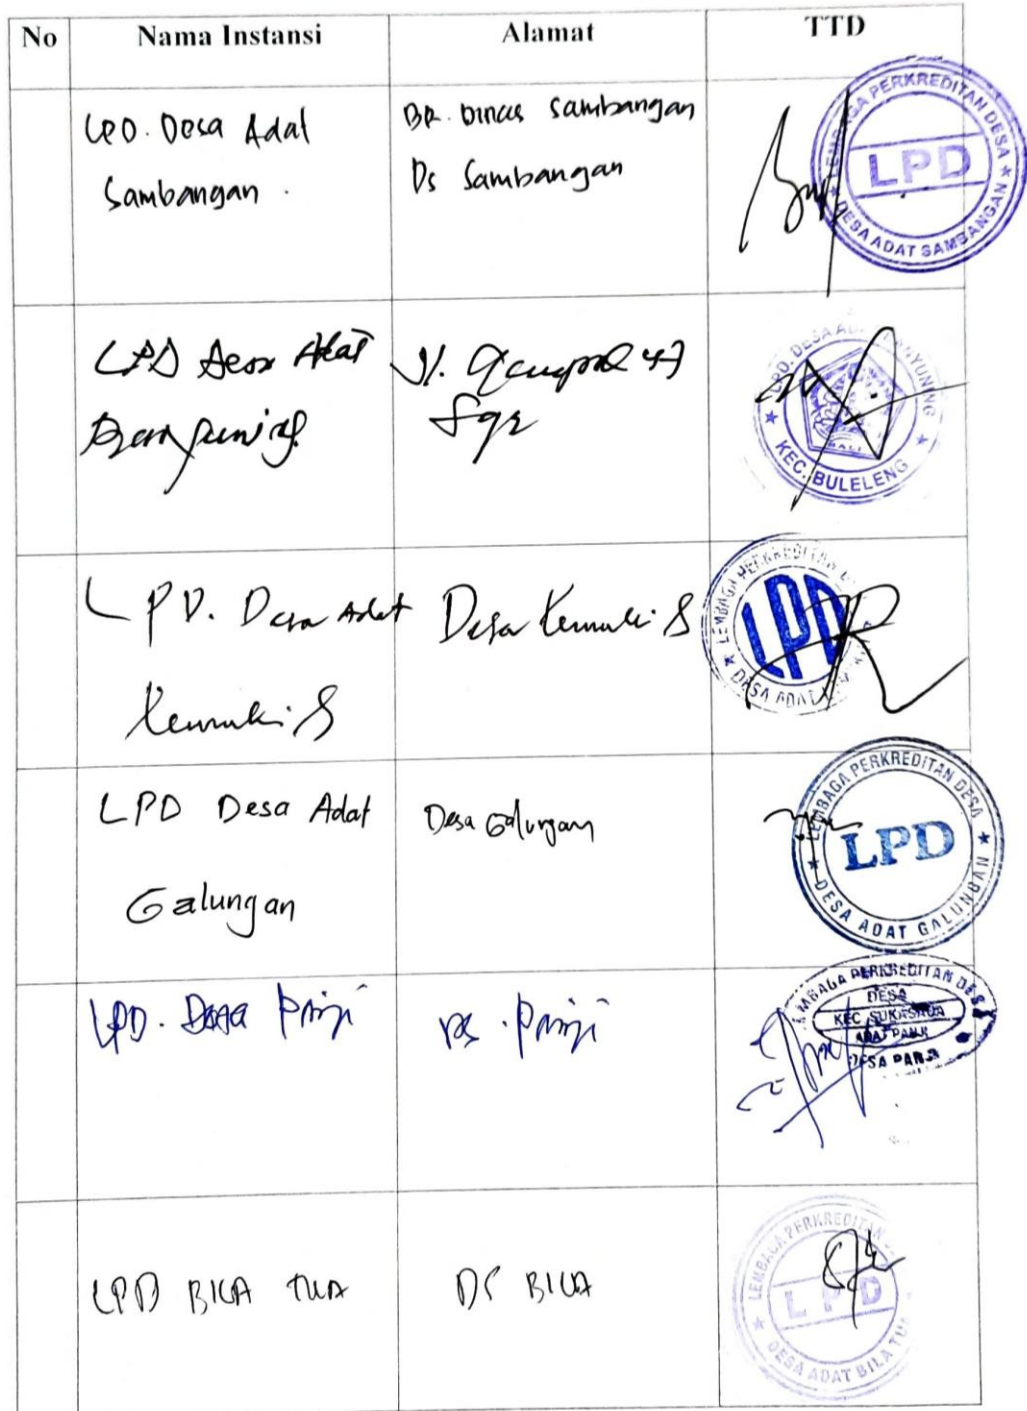 No Nama Instansi Alamat TTD
LPD. Desa Adat
Sambangan.
BR. Dinas Sambangan
Ds Sambangan
LEMBAGA PERKREDITAN DESA
LPD
DESA ADAT SAMBANGAN
LPD Desa Adat
Banyuning
Jl. Gempol 47
Sgr
LPD. DESA ADAT BANYUNING
BALI
KEC. BULELENG
LPD. Desa Adat
Kemuki S
Desa Kemuki S
LEMBAGA PERKREDITAN
LPD
DESA ADAT
LPD Desa Adat
Galungan
Desa Galungan
LEMBAGA PERKREDITAN DESA
LPD
DESA ADAT GALUNGAN
LPD. Desa Panji
Ds. Panji
LEMBAGA PERKREDITAN DESA
DESA
KEC SUKASADA
ADAT PANJI
DESA PANJI
LPD BILA TUA
DS BILA
LEMBAGA PERKREDITAN
LPD
DESA ADAT BILA TUA